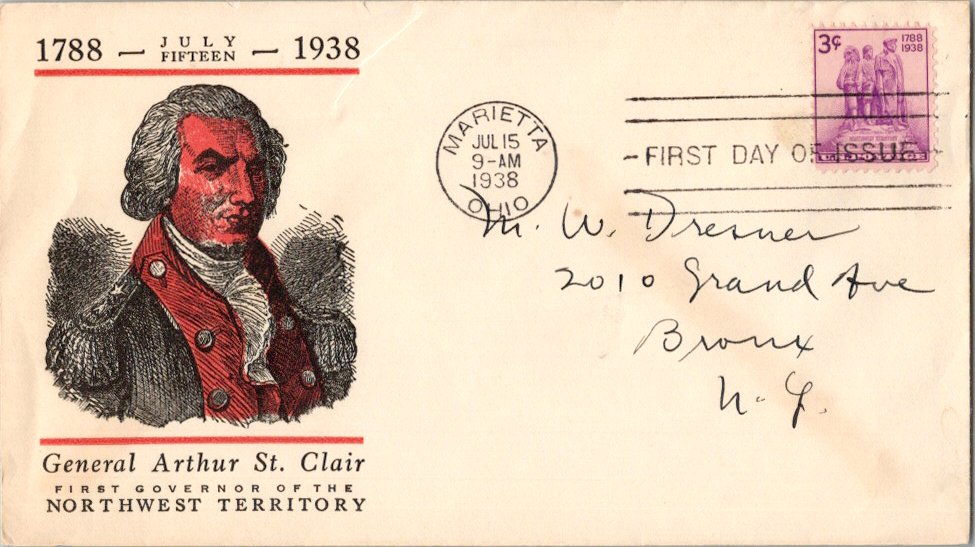 1788 — JULY FIFTEEN — 1938
General Arthur St. Clair
FIRST GOVERNOR OF THE
NORTHWEST TERRITORY
MARIETTA
JUL 15
9-AM
1938
OHIO
3¢
1788
1938
FIRST DAY OF ISSUE
M. W. Dresner
2010 Grand Ave
Bronx
N. Y.